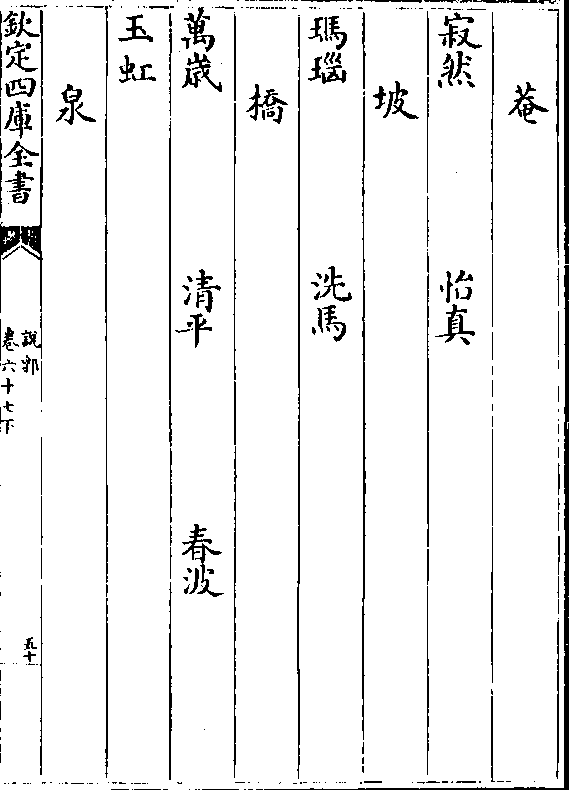 菴
寂然　怡真
坡
瑪瑙　洗馬
橋
萬歳　清平　春波
玉虹
泉
欽定四庫全書
說郛
卷六十七下
五十